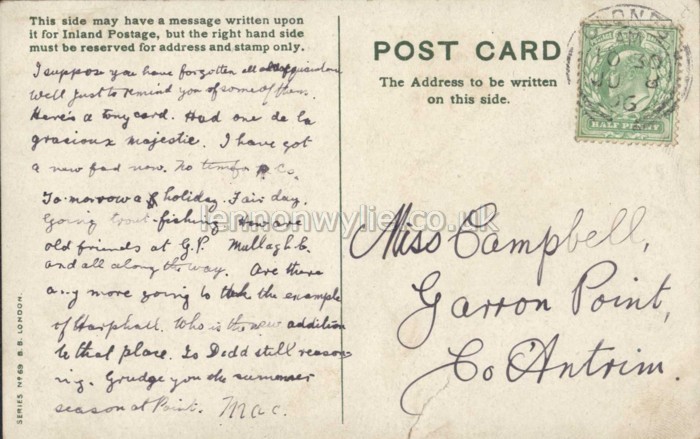 This side may have a message written upon
it for Inland Postage, but the right hand side
must be reserved for address and stamp only.
I suppose you have forgotten all
Well just to remind you of some of them.
Here's a tony card. Had one de la
gracioux majestie. I have got
a new fad now. No
To-morrow a holiday. Fair day.
Going trout-fishing. How are
old friends at G.P. Mullagh
and all along the way. Are there
any more going to the example
of Harphall. Who is the new addition
to that place. Is Dodd still reason-
ing. Grudge you the summer
season at Point. Mac.
SERIES Nº 69 B.B. LONDON.
POST CARD
The Address to be written
on this side.
LONDON
AM
10 30
JU 8
06
HALF PENNY
Miss Campbell,
Garron Point,
Co Antrim.
lennonwylie.co.uk